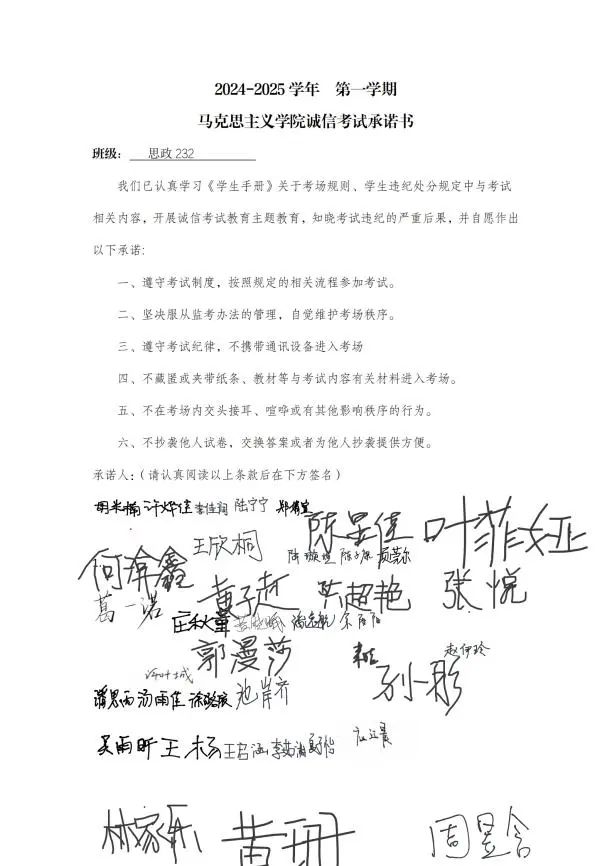 2024-2025 学年 第一学期
马克思主义学院诚信考试承诺书
班级： 思政 232
我们已认真学习《学生手册》关于考场规则、学生违纪处分规定中与考试
相关内容，开展诚信考试教育主题教育，知晓考试违纪的严重后果，并自愿作出
以下承诺:
一、遵守考试制度，按照规定的相关流程参加考试。
二、坚决服从监考办法的管理，自觉维护考场秩序。
三、遵守考试纪律，不携带通讯设备进入考场
四、不藏匿或夹带纸条、教材等与考试内容有关材料进入考场。
五、不在考场内交头接耳、喧哗或有其他影响秩序的行为。
六、不抄袭他人试卷，交换答案或者为他人抄袭提供方便。
承诺人：（请认真阅读以上条款后在下方签名）
许烨佳 陆宁宁 陈星佳 叶菲娅
王欣桐
葛一诺 黄子赵 陈超艳 张悦
庄秋童
郭漫莎 赵伊玲
汤雨佳 池岸齐 孙一彤
吴雨昕 王杨
林家乐 黄珊 周昱含